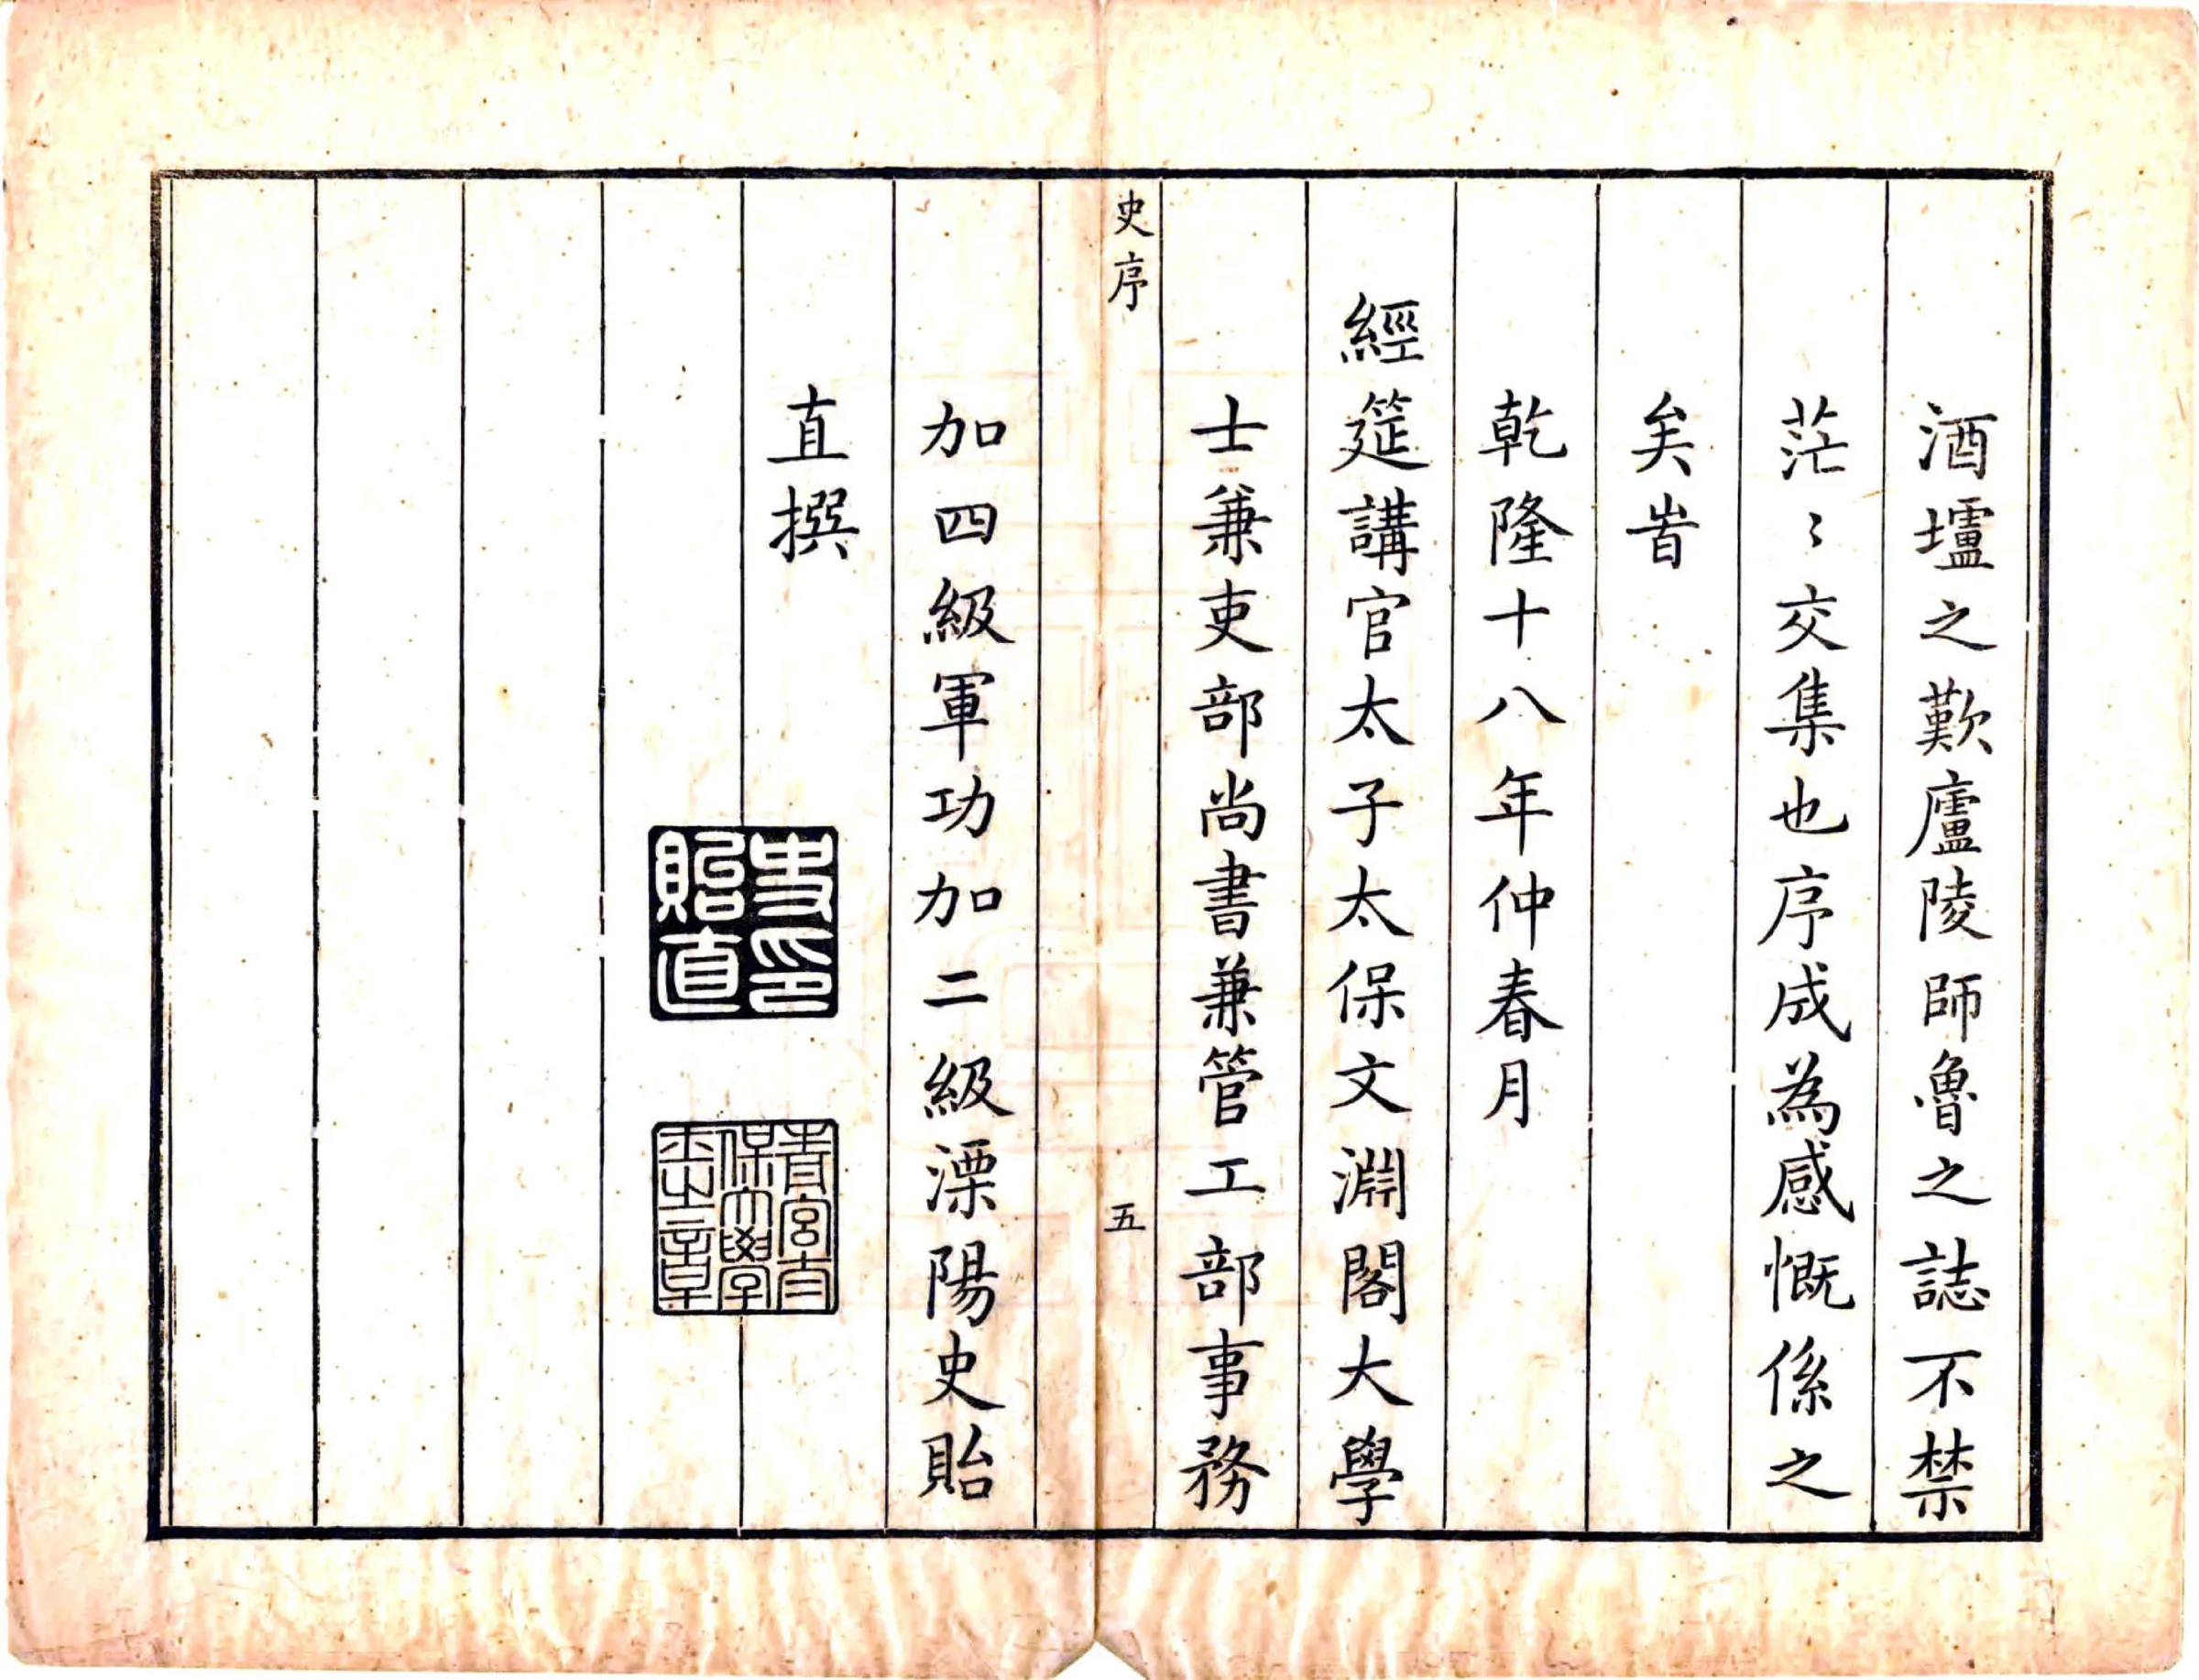 酒壚之歎廬陵師魯之誌不禁
茫〻交集也序成為感慨係之
矣旹
乾隆十八年仲春月
經筵講官太子太保文淵閣大學
士兼吏部尚書兼管工部事務
史序
五
加四級軍功加二級溧陽史貽
直撰
史印
貽直
青宮太
保大學
士之章